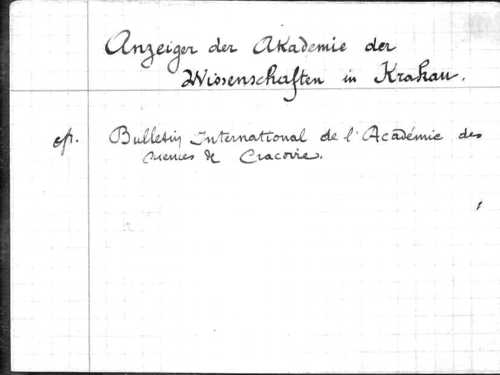 Anzeiger der Akademie der
Wissenschaften in Krakau.
cfr. Bulletin International de l'Académie des
Sciences de Cracovie.